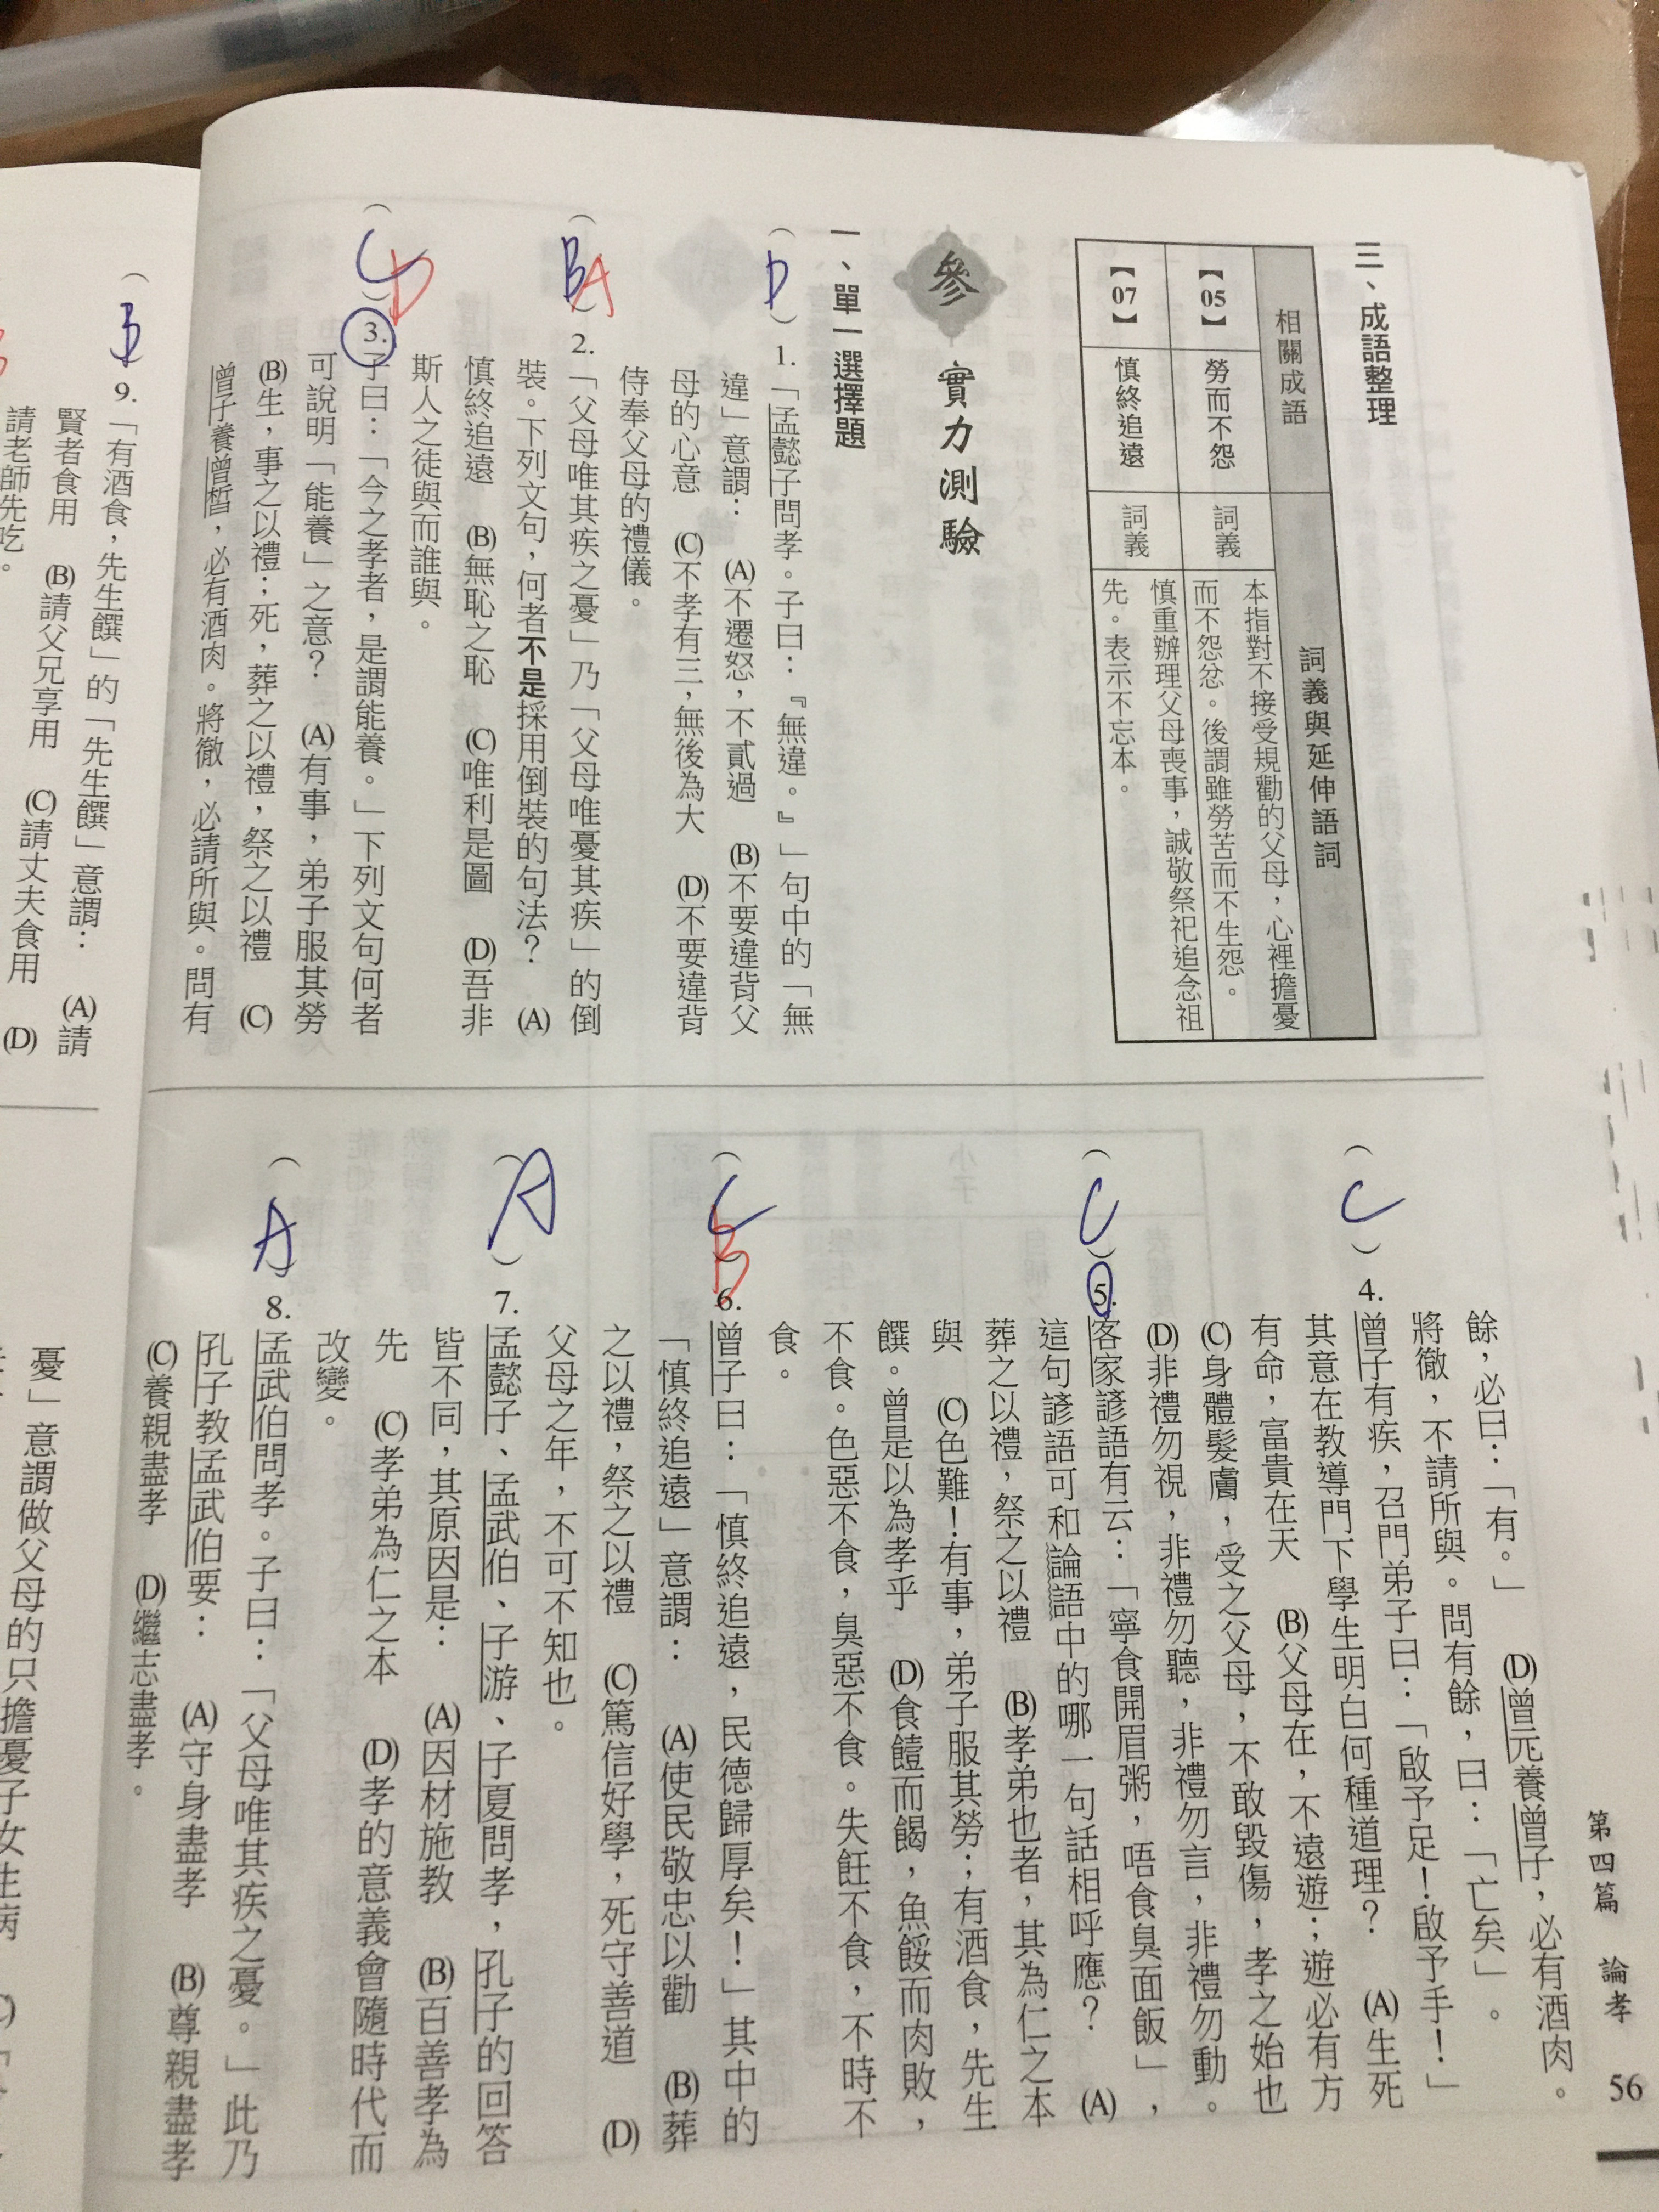 三、成語整理
相關成語
詞義與延伸語詞
【05】
勞而不怨
詞義
本指對不接受規勸的父母，心裡擔憂
而不怨忿。後謂雖勞苦而不生怨。
【07】
慎終追遠
詞義
慎重辦理父母喪事，誠敬祭祀追念祖
先。表示不忘本。
參 實力測驗
一、單一選擇題
（D）1.「孟懿子問孝。子曰：『無違。』」句中的「無
違」意謂： (A)不遷怒，不貳過 (B)不要違背父
母的心意 (C)不孝有三，無後為大 (D)不要違背
侍奉父母的禮儀。
（B A）2.「父母唯其疾之憂」乃「父母唯憂其疾」的倒
裝。下列文句，何者不是採用倒裝的句法？ (A)
慎終追遠 (B)無恥之恥 (C)唯利是圖 (D)吾非
斯人之徒與而誰與。
（C D）3.子曰：「今之孝者，是謂能養。」下列文句何者
可說明「能養」之意？ (A)有事，弟子服其勞
(B)生，事之以禮；死，葬之以禮，祭之以禮 (C)
曾子養曾晳，必有酒肉。將徹，必請所與。問有
餘，必曰：「有。」 (D)曾元養曾子，必有酒肉。
將徹，不請所與。問有餘，曰：「亡矣」。
（C）4.曾子有疾，召門弟子曰：「啟予足！啟予手！」
其意在教導門下學生明白何種道理？ (A)生死
有命，富貴在天 (B)父母在，不遠遊；遊必有方
(C)身體髮膚，受之父母，不敢毀傷，孝之始也
(D)非禮勿視，非禮勿聽，非禮勿言，非禮勿動。
（C）5.客家諺語有云：「寧食開眉粥，唔食臭面飯」，
這句諺語可和論語中的哪一句話相呼應？ (A)
葬之以禮，祭之以禮 (B)孝弟也者，其為仁之本
與 (C)色難！有事，弟子服其勞；有酒食，先生
饌。曾是以為孝乎 (D)食饐而餲，魚餒而肉敗，
不食。色惡不食，臭惡不食。失飪不食，不時不
食。
（C B）6.曾子曰：「慎終追遠，民德歸厚矣！」其中的
「慎終追遠」意謂： (A)使民敬忠以勸 (B)葬
之以禮，祭之以禮 (C)篤信好學，死守善道 (D)
父母之年，不可不知也。
（A）7.孟懿子、孟武伯、子游、子夏問孝，孔子的回答
皆不同，其原因是： (A)因材施教 (B)百善孝為
先 (C)孝弟為仁之本 (D)孝的意義會隨時代而
改變。
（A）8.孟武伯問孝。子曰：「父母唯其疾之憂。」此乃
孔子教孟武伯要： (A)守身盡孝 (B)尊親盡孝
(C)養親盡孝 (D)繼志盡孝。
第四篇 論孝 56
（B）9.「有酒食，先生饌」的「先生饌」意謂： (A)請
賢者食用 (B)請父兄享用 (C)請丈夫食用 (D)
請老師先吃。
憂」意謂做父母的只擔憂子女生病